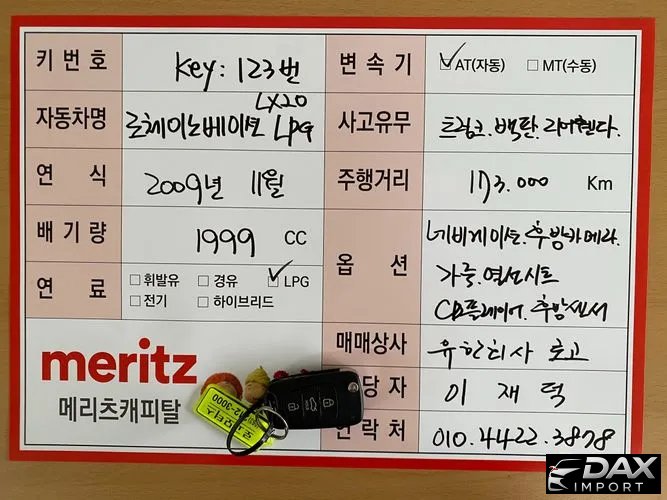 키 번 호 Key: 123번 변 속 기 AT(자동) MT(수동)
LX20
자동차명 로체이노베이션 LPG 사고유무 트렁크.백판.리어휀다.
연 식 2009년 11월 주행거리 173.000 Km
배 기 량 1999 CC
옵 션 네비게이션.후방카메라.
가죽.열선시트
CD플레이어.후방센서
연 료 휘발유 경유 LPG
전기 하이브리드
매매상사 유한회사 로고
당 자 이 재 덕
연 락 처 010.4422.3878
meritz
메리츠캐피탈
2-3000
DAX
IMPORT